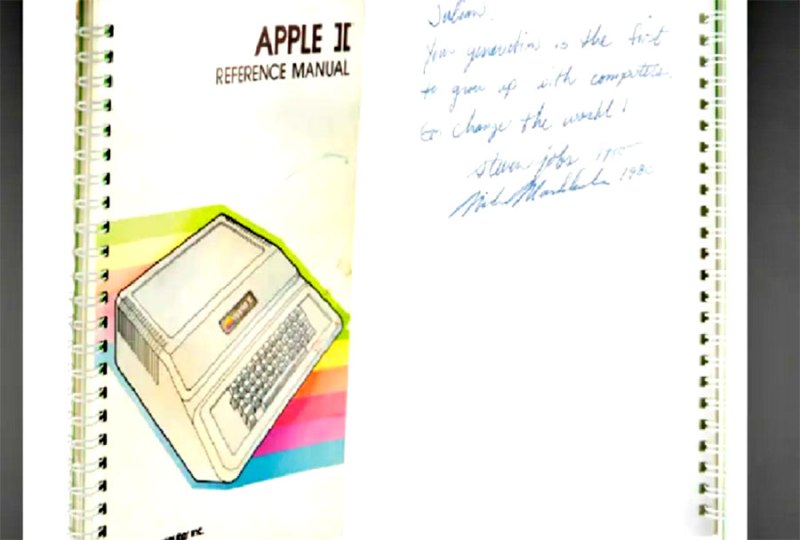 APPLE ][
REFERENCE MANUAL
Julian,
Your generation is the first
to grow up with computers.
Go change the world!
steven jobs
1980
INC.